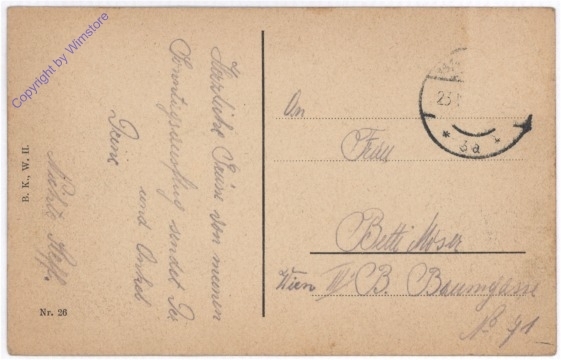 Copyright by Wimstore
Herzliche Grüsse von meinem
Sonntagsausflug sendet Dir
und Onkel
Deine
B. K., W. II.
Nr. 26
An
Frau
Betti Moser
Wien B. Baumgasse
No 71
23.
* 3a